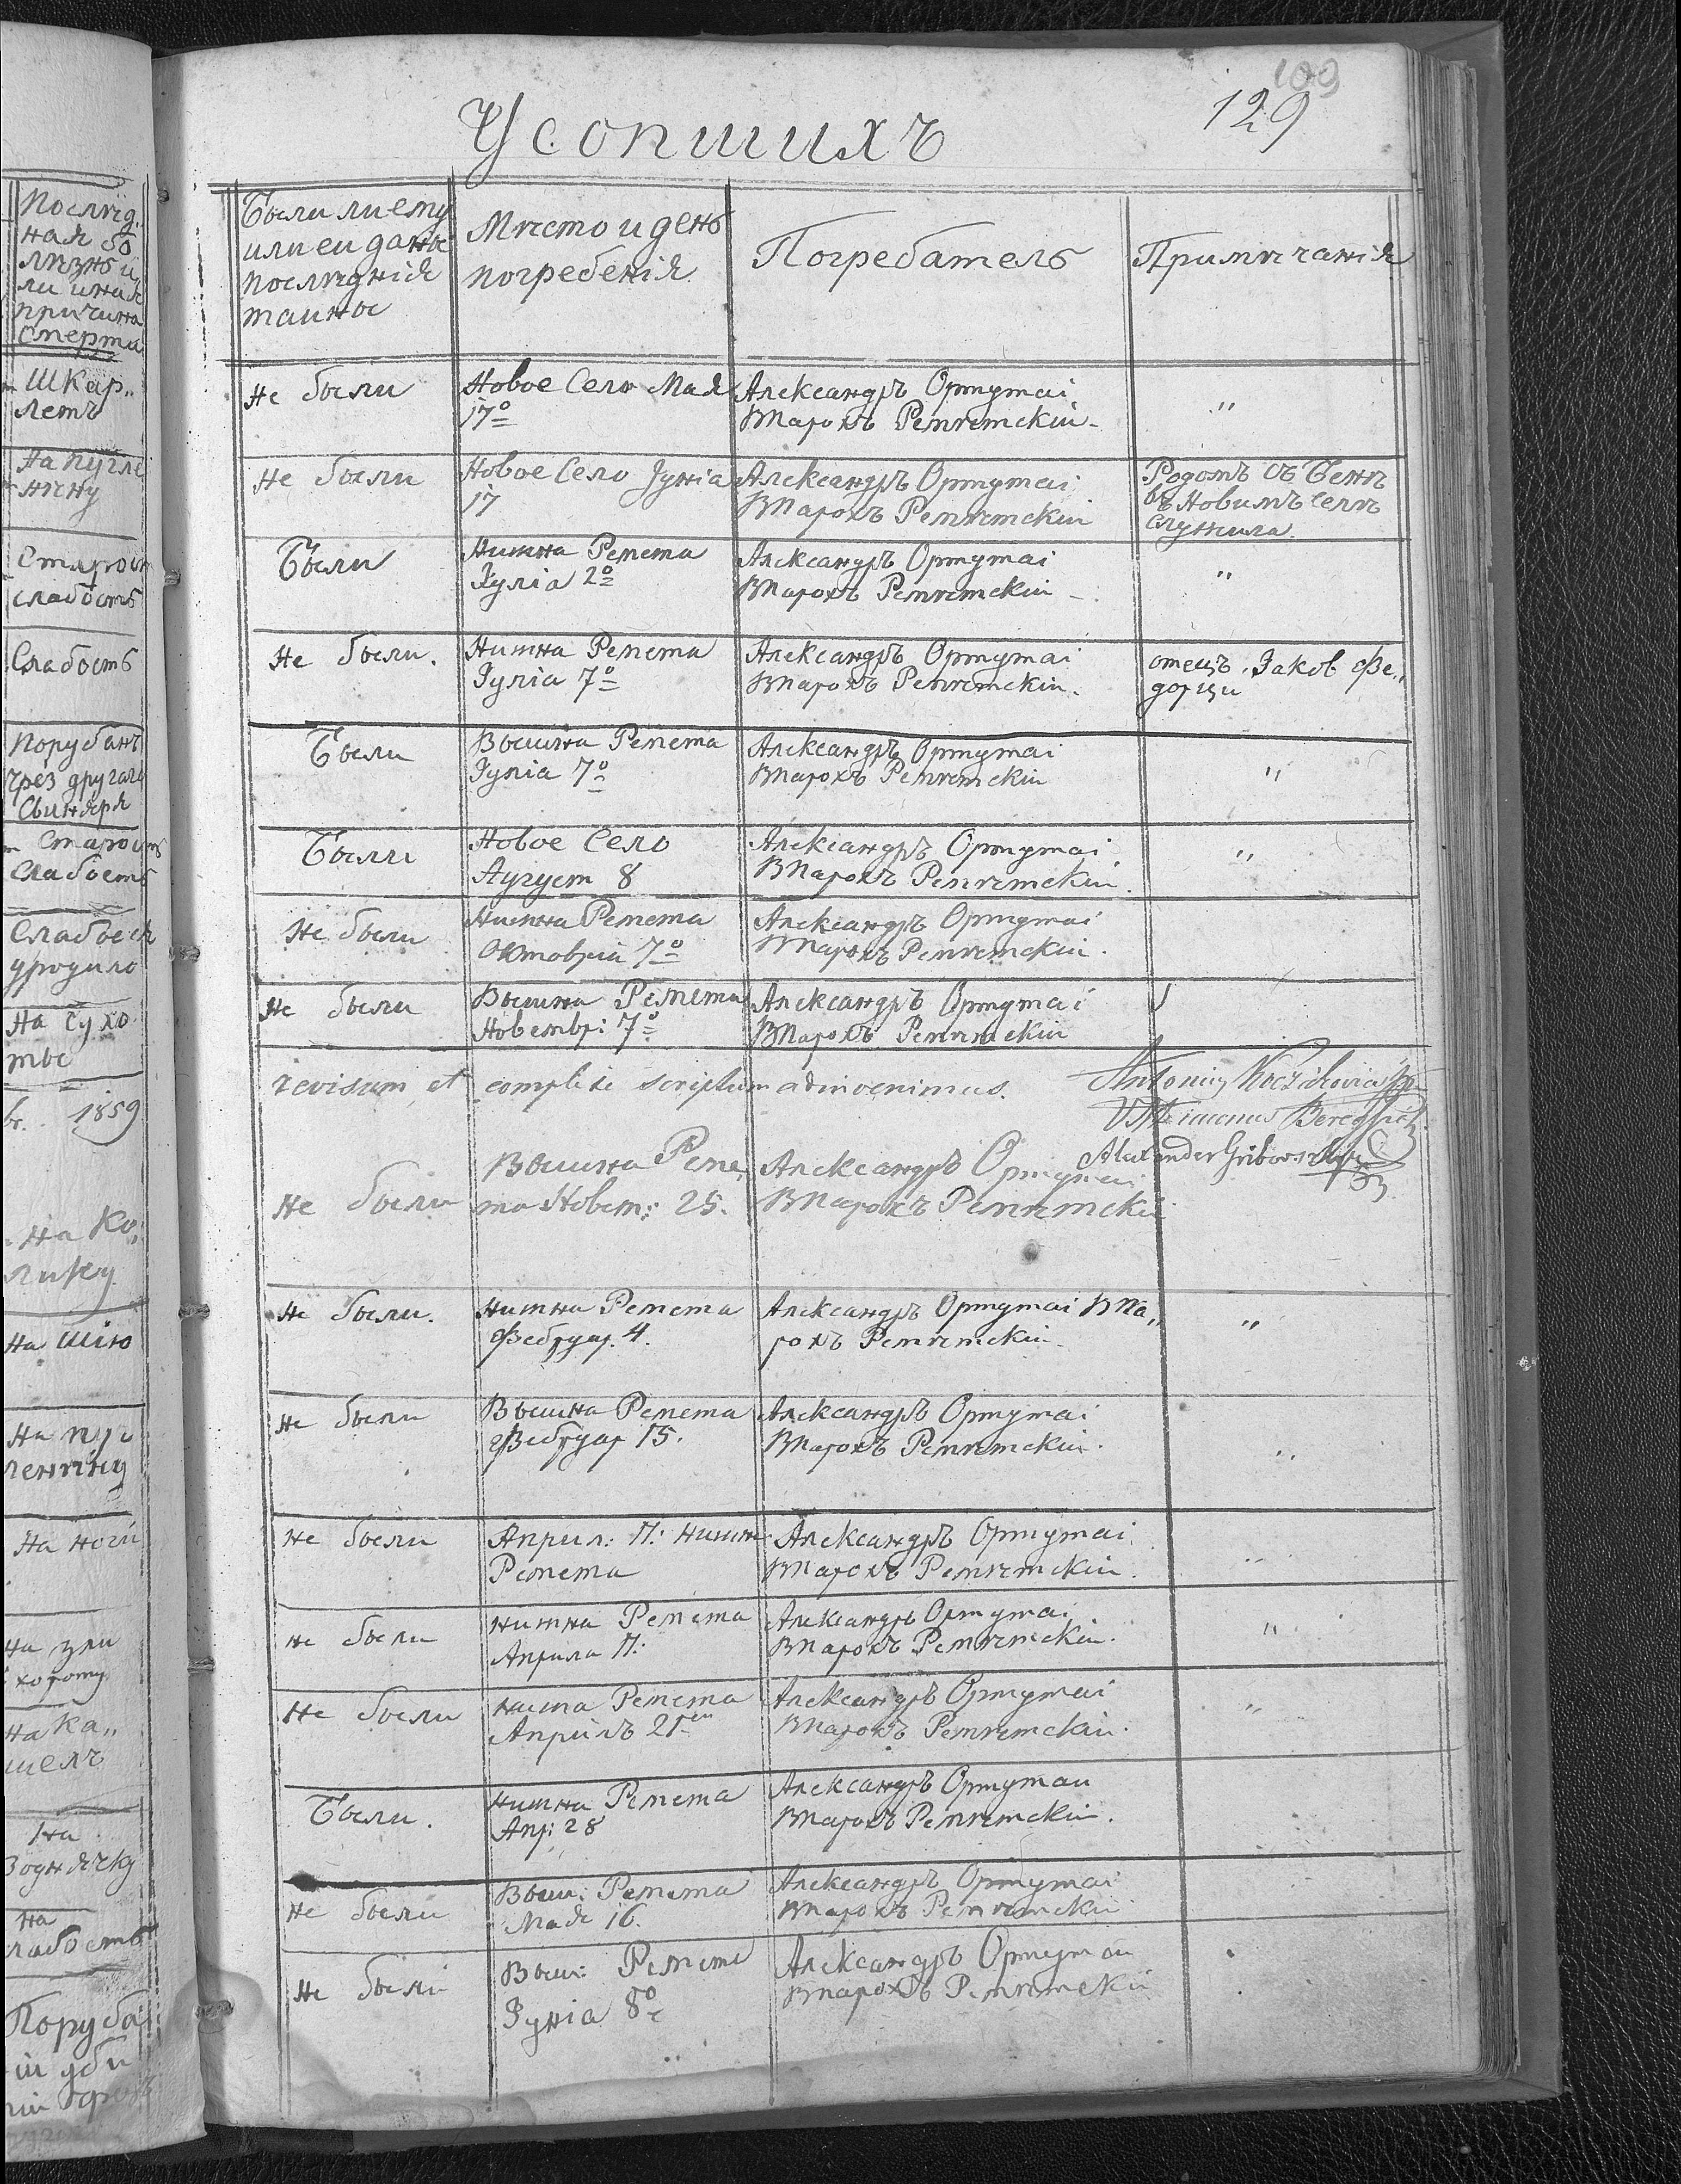 109
129
Усопшихъ
Послѣд„
ная бо
лѣзнь и
ли иная
причина
смерти
Были ли ему
или еи даны
послѣднія
таины
Мѣсто и день
погребенія
Погребатель
Примѣчанія
Шкар„
летъ
Не были
Новое Село Мая
17º
Александръ Ортутаі
Впарохъ Репѣтскіи
"
На пугле
нѣну
Не были
Новое Село Јуніа
17
Александръ Ортутаі
Впарохъ Репѣтскіи
Родомъ съ Бенѣ
въ Новимъ Селѣ
служила
слабость
Были
Нижна Ремета
Јуліа 2º
Александръ Ортутаі
Впарохъ Реметскіи
"
Слабость
Не были.
Нижна Ремета
Јуліа 7º
Александръ Ортутаі
Впарохъ Реметскіи.
отецъ Јаков Фе„
дорци
Порубанъ
чрез другаго
Были
Вышна Ремета
Јуліа 7º
Александръ Ортутаі
Впарохъ Реметскіи
"
Старость
Слабость
Были
Новое Село
Аугуст 8
Александръ Ортутаі
Впарохъ Реметскіи.
"
уродило
Не были
Нижна Ремета
Октовріа 7º
Александръ Ортутаі
Впарохъ Реметскіи.
На сухо
ты
Не были
Вышна Ремета
Новембр: 7º
Александръ Ортутаі
Впарохъ Реметскіи
1859
revisum et complete scriptum adinvenimus.
Alexander Gribovszky
На Ко„
лику
Не были
Вышна Реме„
та Новем: 25.
Александръ Ортутаи
Впарохъ Реметскіи
На шію
Не были.
Нижна Ремета
Фебруар. 4.
Александръ Ортутаі Впа„
рохъ Реметскіи
"
Не были
Вышна Ремета
Фебруар 15.
Александръ Ортутаі
Впарохъ Реметскіи.
На ноги
Не были
Април: 11: нижн
Ремета
Александръ Ортутаі
Впарохъ Реметскіи.
Не были
Нижна Ремета
Априла 11:
Александръ Ортутаі
Впарохъ Реметскіи.
"
На ка„
шелъ
Не были
Ремета
Априлъ 21
Александръ Ортутаі
Впарохъ Реметскіи.
"
На
Были.
Нижна Ремета
Апр: 28
Александръ Ортутаи
Впарохъ Реметскіи.
на
слабость
Не были
Выш: Ремета
Мая 16.
Александръ Ортутаі
Впарохъ Реметскіи
Не были
Выш: Ремета
Јуніа 8º
Александръ Ортутаи
Впарохъ Реметскіи